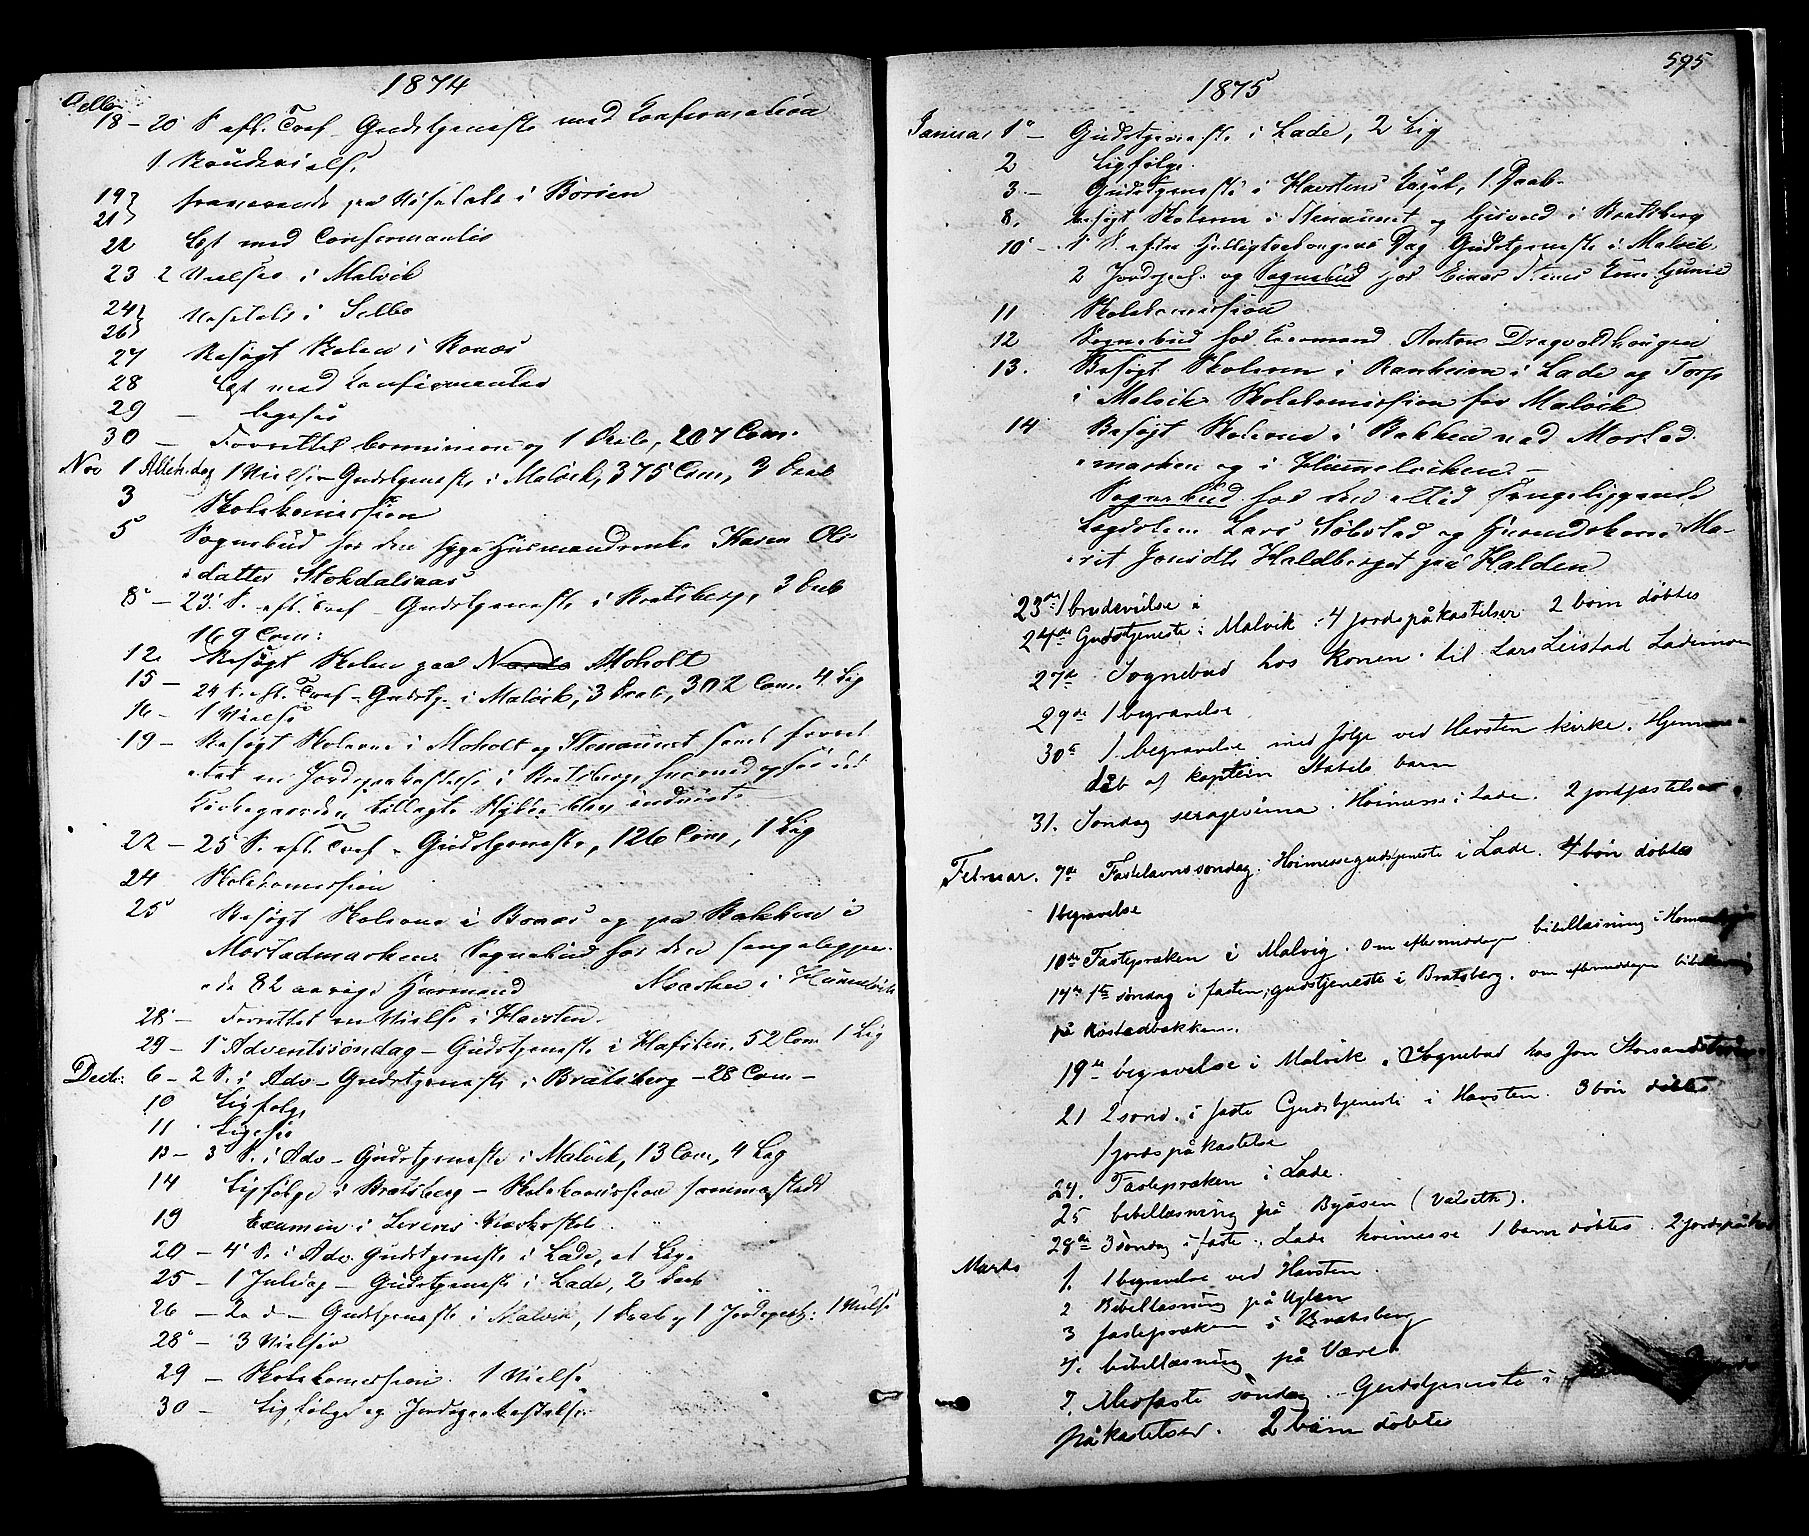 1874
18 – 20 S. eft. Tref – Gudstjeneste med Confirmation
1
19
21 fraværende paa i Börsen
22 Læst med Confirmantes
23 2 Vielser i Malvik
24
26 i Selbo
27 Besøgt Skolen i Bonæs
28 Læst med Confirmantes
29 – ligesaa
30 – Forrettet Communion og 1 Daab, 207 Com.
Nov 1 Alleh.dag 1 Vielse – Gudstjeneste i Malvik, 375 Com, 3 Daab
3 Skolekomission
5 Sognebud hos den syge Huusmandsenke Karen Ols-
datter Stokdalsaas
8 – 23 S. eft. Tref – Gudstjeneste i Bratsberg, 3 Daab
169 Com:
12 Besøgt Skolen paa Moholt
15 – 24 S. eft. Tref – Gudstj. i Malvik, 3 Daab, 302 Com. 4 Lig
16 – 1 Vielse
19 – Besøgt Skolerne i Moholt og Stenaunet samt forret
tet en Jordpaakastelse i Bratsberg, hvorved ogsaa det
Kirkegaarden tillagte Stykke blev indviet.
22 – 25 S. eft. Tref – Gudstjeneste, 126 Com, 1 Lig
24 Skolekomission
25 Besøgt Skolerne i Bonæs og paa Bakken i
Mostadmarken. Sognebud hos den sengeliggen-
de 82 aarige Huusmand i
28 – Forrettet en Vielse i Havsten.
29 – 1 Adventssöndag – Gudstjeneste i Hafsten, 52 Com 1 Lig
Decb: 6 – 2 S. i Adv – Gudstjeneste i Bratsberg – 28 Com –
10 Ligfølge
11 Ligesaa
13 – 3 S. i Adv – Gudstjeneste i Malvik, 13 Com, 4 Lig
14 Ligfølge i Bratsberg – Skolekomission sammesteds
19 Examen i
20 – 4 S. i Adv. Gudstjeneste i Lade, et Lig.
25 – 1 Juledag – Gudstjeneste i Lade, 2 Daab
26 – 2 d – Gudstjeneste i Malvik, 1 Daab, 1 Jordpaak: 1 Vielse
28 – 3 Vielser
29 – Skolekomission. 1 Vielse
30 – Ligfølge og Jordpaakastelse
595
1875
Januar 1 – Gudstjeneste i Lade, 2 Lig
2 Ligfølge.
3 – Gudstjeneste i Havstens Capel, 1 Daab –
8. Besøgt Skolerne i Stenaunet og i Bratsberg
10 – 1 S. efter Helligtrekongers Dag Gudstjeneste i Malvik,
2 Jordpaak. og Sognebud hos
11 Skolekomission
12 Sognebud hos Anton Dragvoldhaugen
13. Besøgt Skolerne i Ranheim i Lade og Torp
i Malvik Skolekomission for Malvik
14 Besøgt Skolerne i Bakken ved Mostad
marken og i Hommelviken –
Sognebud hos den altid sengeliggende
Lars Sölstad og Ma-
rit Haldberget paa Halden
23de 1 brudevielse i
24de Gudstjeneste i Malvik. 4 jordspåkastelser 2 børn døbtes
27de Sognebud hos konen til Lars Leistad Lademoen
29de 1 begravelse
30te 1 begravelse med følge ved Havsten kirke. Hjemme-
dåb af kaptein Stabels barn
31. Søndag sexagesima. Høimesse i Lade. 2 jordfæstelser
Februar. 7de Fastelavnssøndag. Høimessegudstjeneste i Lade. 4 børn døbtes
1 begravelse
10de Fasteprækèn i Malvig. Om eftermiddagen bibellæsning i
14de 1ste søndag i fasten, gudstjeneste i Bratsberg. om eftermiddagen bibellæsning
på Rostadbakken.
19de begravelse i Malvik. Sognebud hos Jon
21 2 sønd. i faste Gudstjeneste i Havsten. 3 børn døbtes
1 jordspåkastelse
24. Fasteprækén i Lade.
25 bibellæsning på Byåsen (Valseth).
28de 3 søndag i faste. Lade høimesse 1 barn døbtes. 2 jordspåkast
Marts 1. 1 begravelse ved Havsten.
2 Bibellæsning på Uglen
3 fasteprækén i Bratsberg
4. bibellæsning på Være
7. Midfaste søndag. Gudstjeneste i
påkastelser. 2 børn døbtes